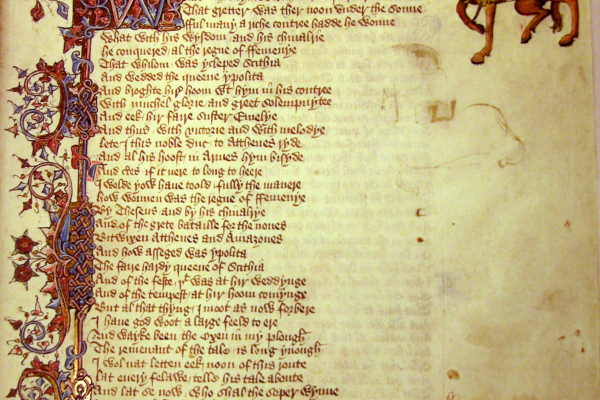 W
That gretter was ther noon vnder the sonne
fful many a riche contree hadde he wonne
What with his wysdom and his chiualrie
He conquered al the regne of ffemenye
That whilom was ycleped Scithia
And wedded the queene ypolita
And broghte hir hoom wt hym in his contree
With muchel glorie and greet solempnytee
And eek hir faire suster Emelye
And thus with victorie and with melodye
Lete I this noble duc to Atthenes ryde
And al his hoost in Armes hym bisyde
And certes if it nere to long to heere
I wolde yow haue toold fully the manere
How wonnen was the regne of ffemenye
By Theseus and by his chiualrye
And of the grete bataille for the nones
Bitwixen Atthenes and Amazones
And how asseged was ypolita
The faire hardy queene of Scithia
And of the feste yt was at hir weddynge
And of the tempest at hir hoom comynge
But al that thyng I moot as now forbere
I haue god woot a large feeld to ere
And wayke been the Oxen in my plough
The remenant of the tale is long ynough
I wol nat letten eek noon of this route
Lat euery felawe telle his tale aboute
And lat se now who shal the soper wynne